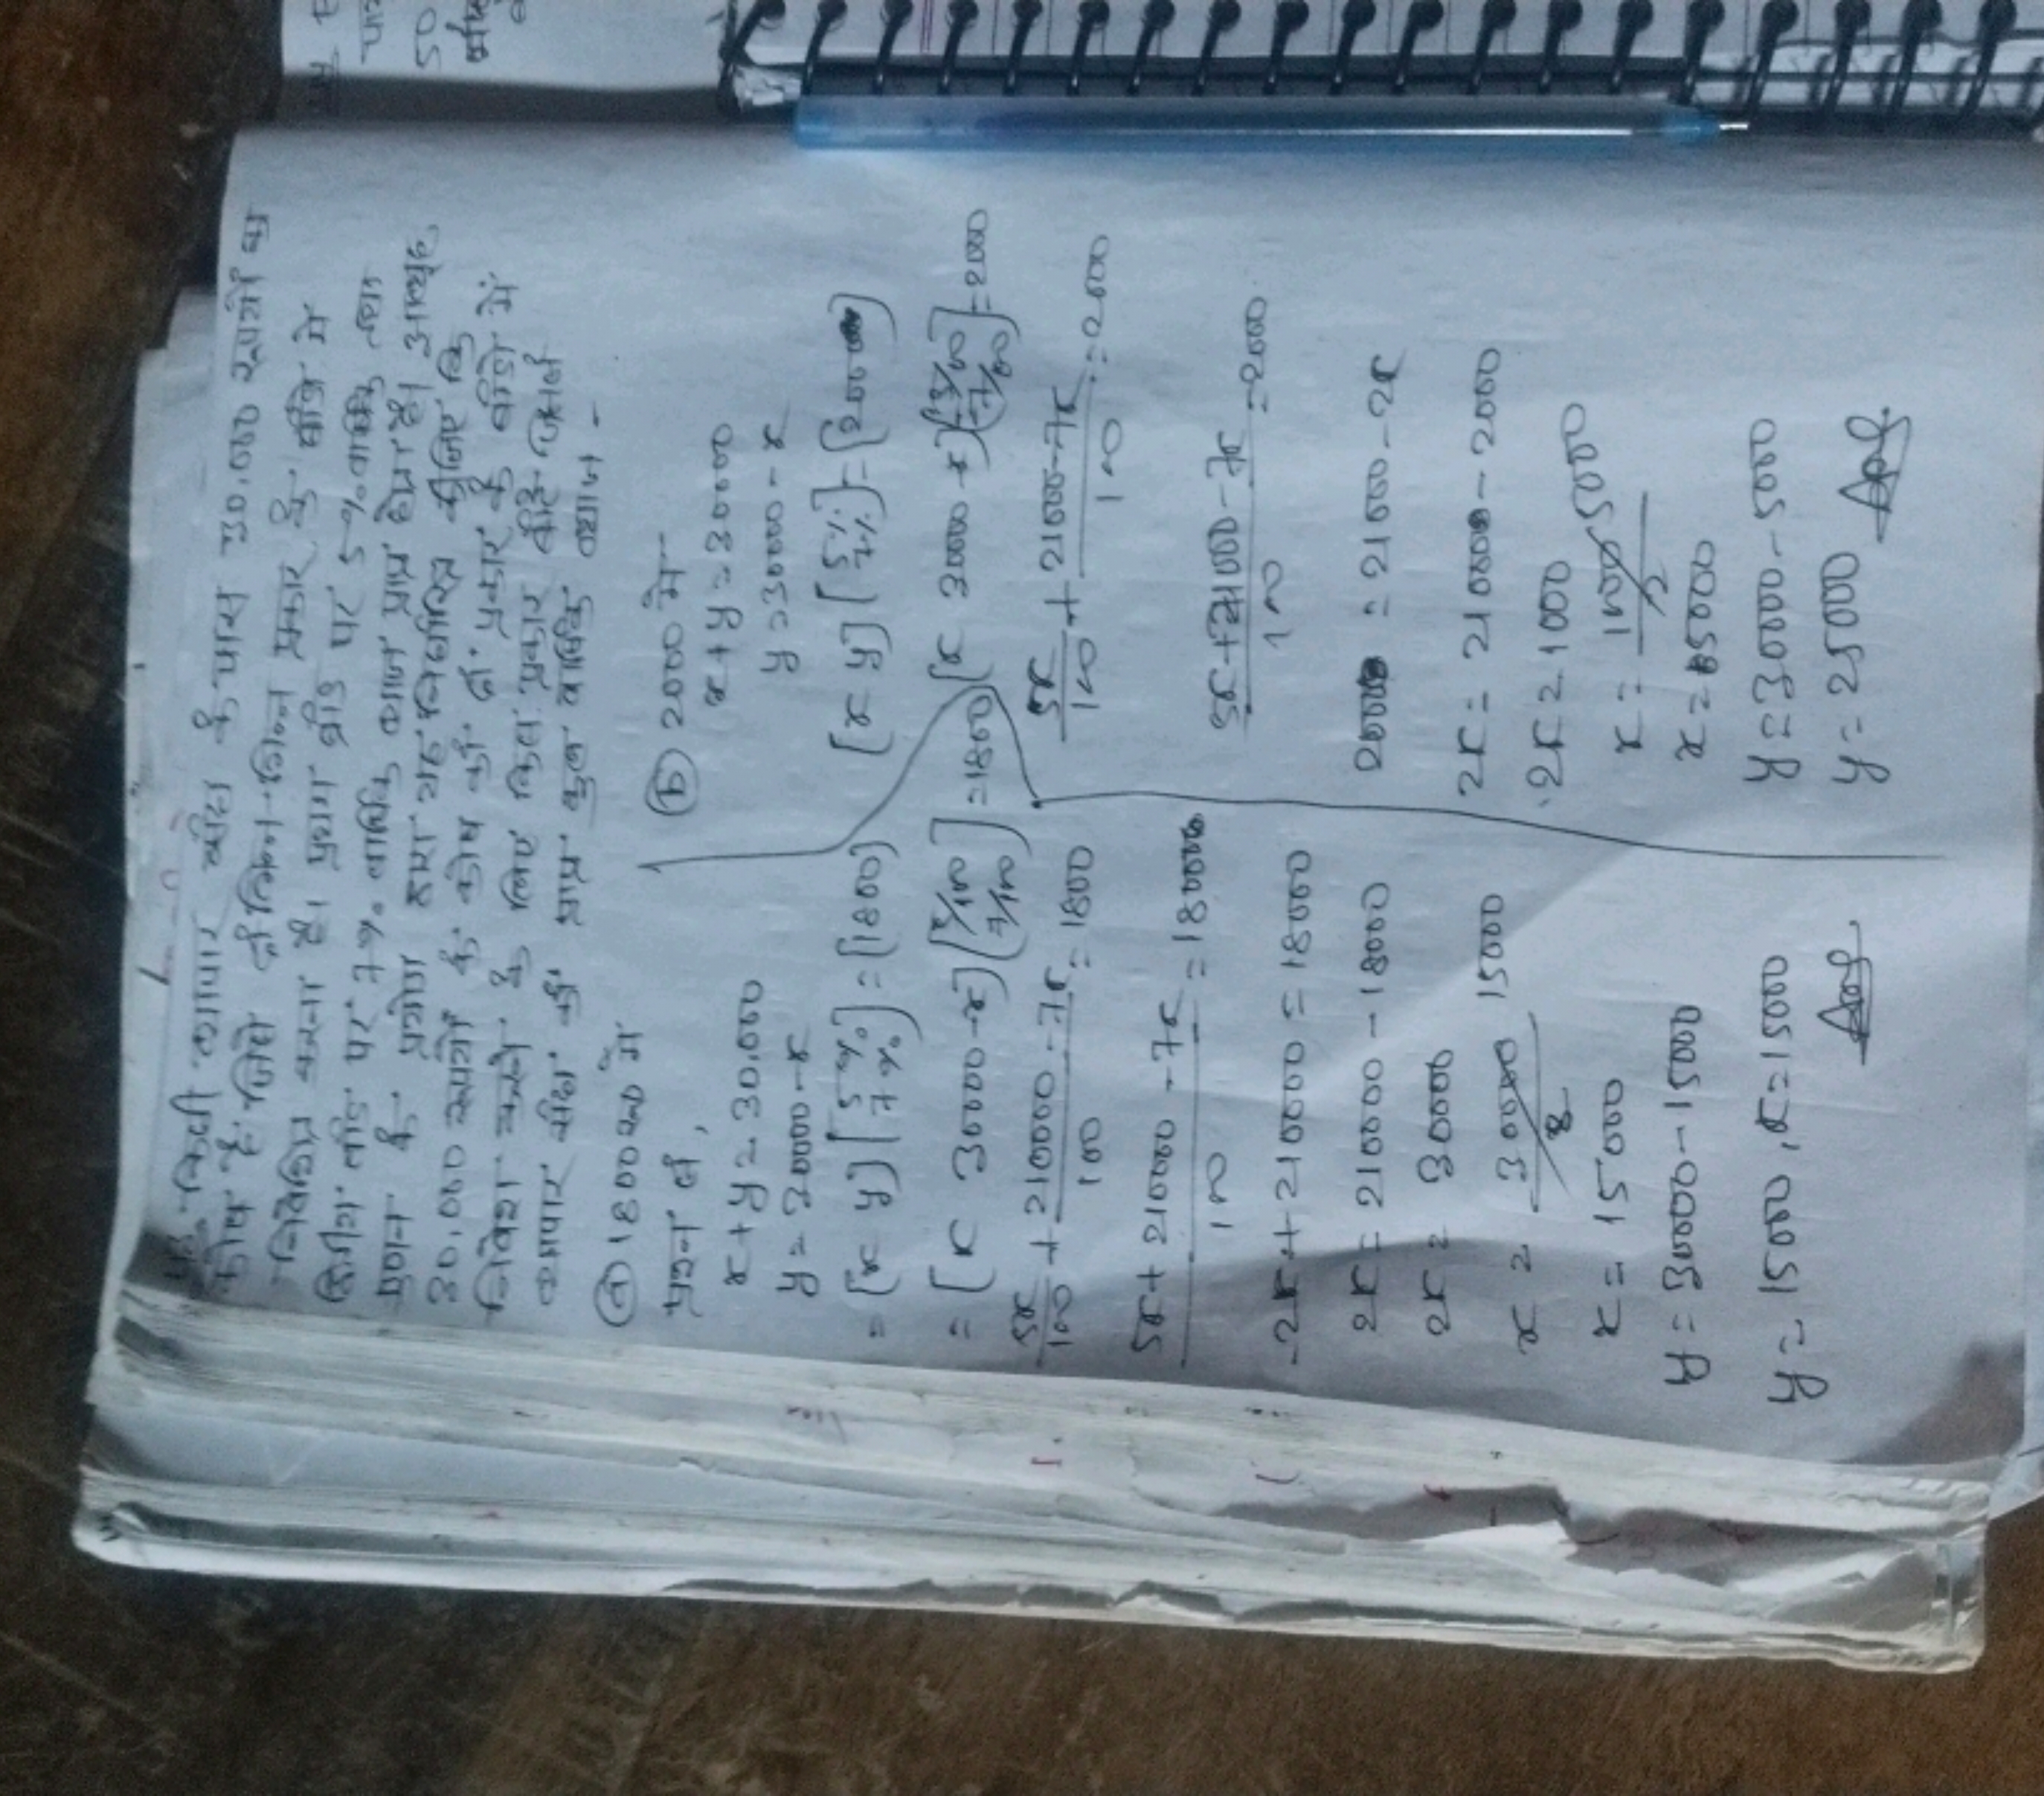 किसी व्यापार संघ के पास 30,000 रुपयों का
कोष है, जिसे दो भिन्न-भिन्न प्रकार के बांडों मे
निवेशित करना है। प्रथम बांड पर 5% वार्षिक तथा
द्वितीय बांड पर 7% वार्षिक ब्याज प्राप्त होता है। आव्यूह
गुणन के प्रयोग द्वारा यह निर्धारित कीजिए कि
30,000 रुपयों के कोष को दो प्रकार के बांडों में
निवेश करने के लिए किस प्रकार बाँटें जिससे
व्यापार संघ को प्राप्त कुल वार्षिक ब्याज -
(a) 1800 रू0 में
प्रश्न से,
x + y = 30,000
y = 30000 - x
= [x y] [5% 7%] = [1800]
= [x 30000 - x] [5/100 7/100] = 1800
5x/100 + 210000 - 7x/100 = 1800
5x + 210000 - 7x/100 = 180000
-2x + 210000 = 18000
2x = 210000 - 18000
2x = 30000
x = 30000/2 15000
x = 15000
y = 30000 - 15000
y = 15000, x = 15000
Ans
(b) 2000 मे
x + y = 30000
y = 30000 - x
[x y] [5% 7%] = [2000]
[x 30000 - x] [5/100 7/100] = 2000
5x/100 + 21000 - 7x/100 = 2000
5x + 21000 - 7x/100 = 2000
2000 = 21000 - 2x
2x = 21000 - 2000
2x = 1000
x = 1000/2 5000
x = 5000
y = 30000 - 5000
y = 25000 Ans